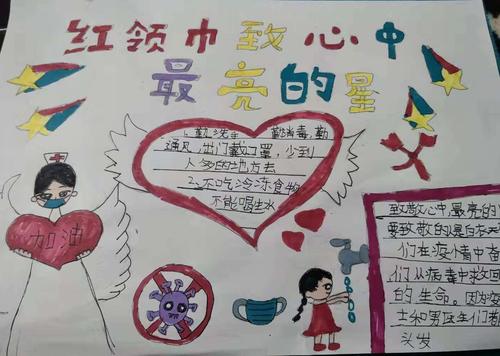 红领巾致心中
最亮的星
1、勤洗手 勤消毒，勤
通风，出门戴口罩，少到
人多的地方去
2、不吃冷冻食物
不能喝生水
加油
致敬心中最亮的
要致敬的是白衣天
们在疫情中奋
们从病毒中救回
的生命。因为
士和男医生们都
头发